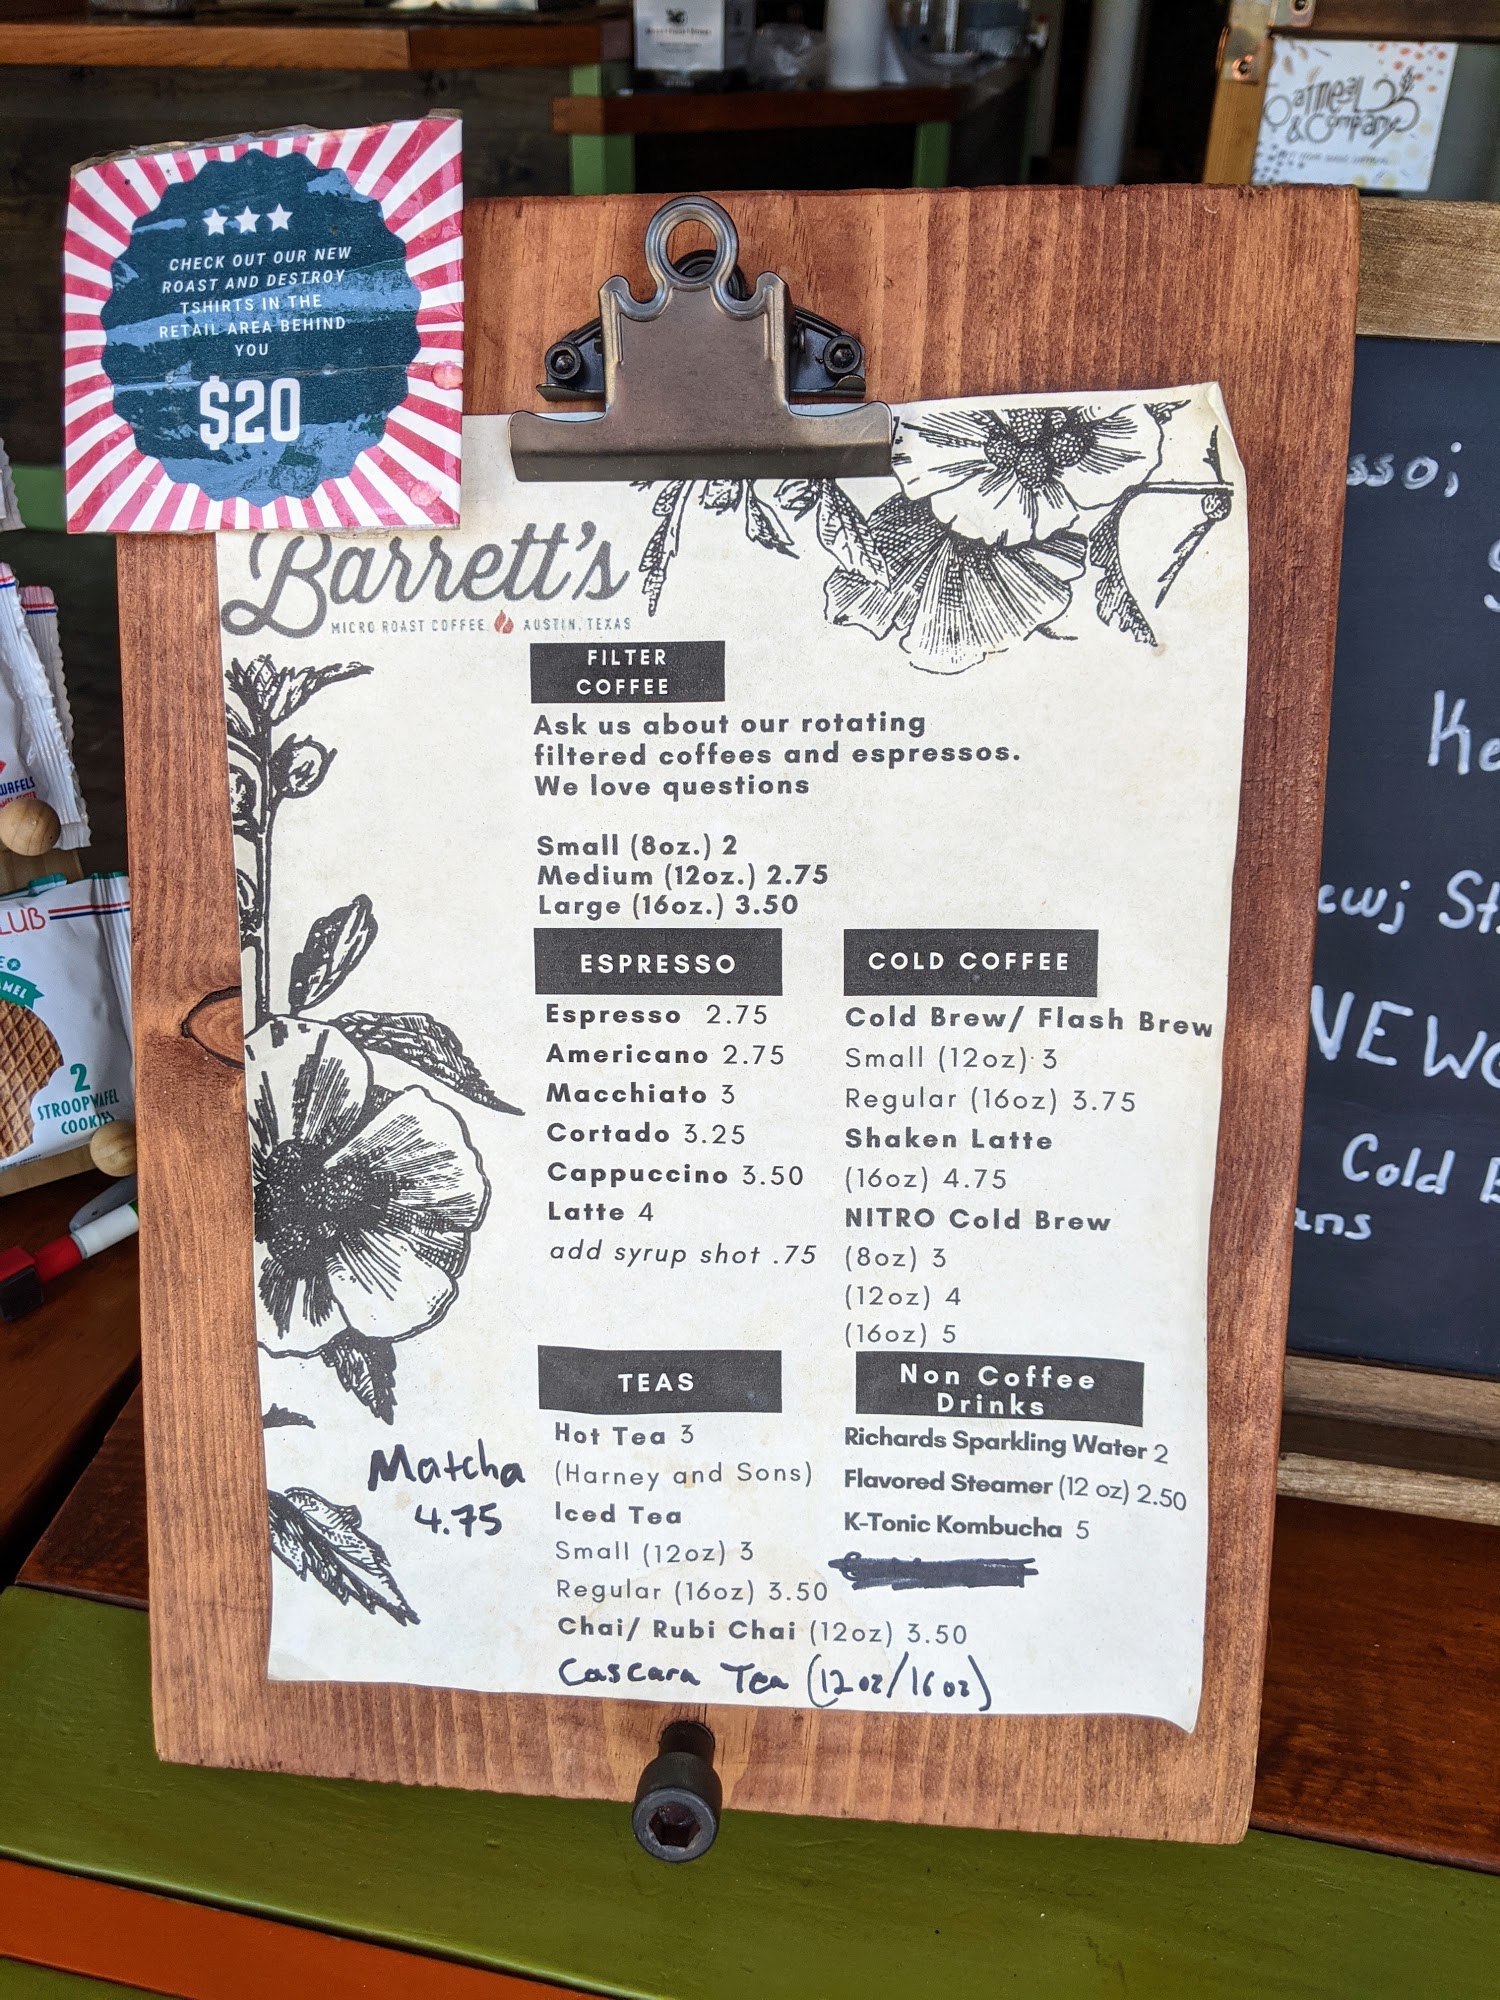 CHECK OUT OUR NEW
ROAST AND DESTROY
TSHIRTS IN THE
RETAIL AREA BEHIND
YOU
$20
Oatmeal
& Company
Barrett's
MICRO ROAST COFFEE AUSTIN, TEXAS
FILTER
COFFEE
Ask us about our rotating
filtered coffees and espressos.
We love questions
Small (8oz.) 2
Medium (12oz.) 2.75
Large (16oz.) 3.50
ESPRESSO
Espresso 2.75
Americano 2.75
Macchiato 3
Cortado 3.25
Cappuccino 3.50
Latte 4
add syrup shot .75
COLD COFFEE
Cold Brew/ Flash Brew
Small (12oz) 3
Regular (16oz) 3.75
Shaken Latte
(16oz) 4.75
NITRO Cold Brew
(8oz) 3
(12oz) 4
(16oz) 5
TEAS
Hot Tea 3
(Harney and Sons)
Iced Tea
Small (12oz) 3
Regular (16oz) 3.50
Chai/ Rubi Chai (12oz) 3.50
Cascara Tea (12oz/16oz)
Matcha
4.75
Non Coffee
Drinks
Richards Sparkling Water 2
Flavored Steamer (12 oz) 2.50
K-Tonic Kombucha 5
WAFELS
LUB
2
STROOPWAFEL
COOKIES
Cold